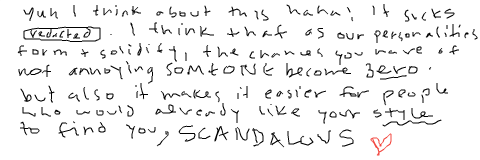 yuh I think about this haha! it sucks
[redacted]. I think that as our personalities
form + solidify, the chances you have of
not annoying SOMEONE become zero.
but also it makes it easier for people
who would already like your style
to find you, SCANDALOUS